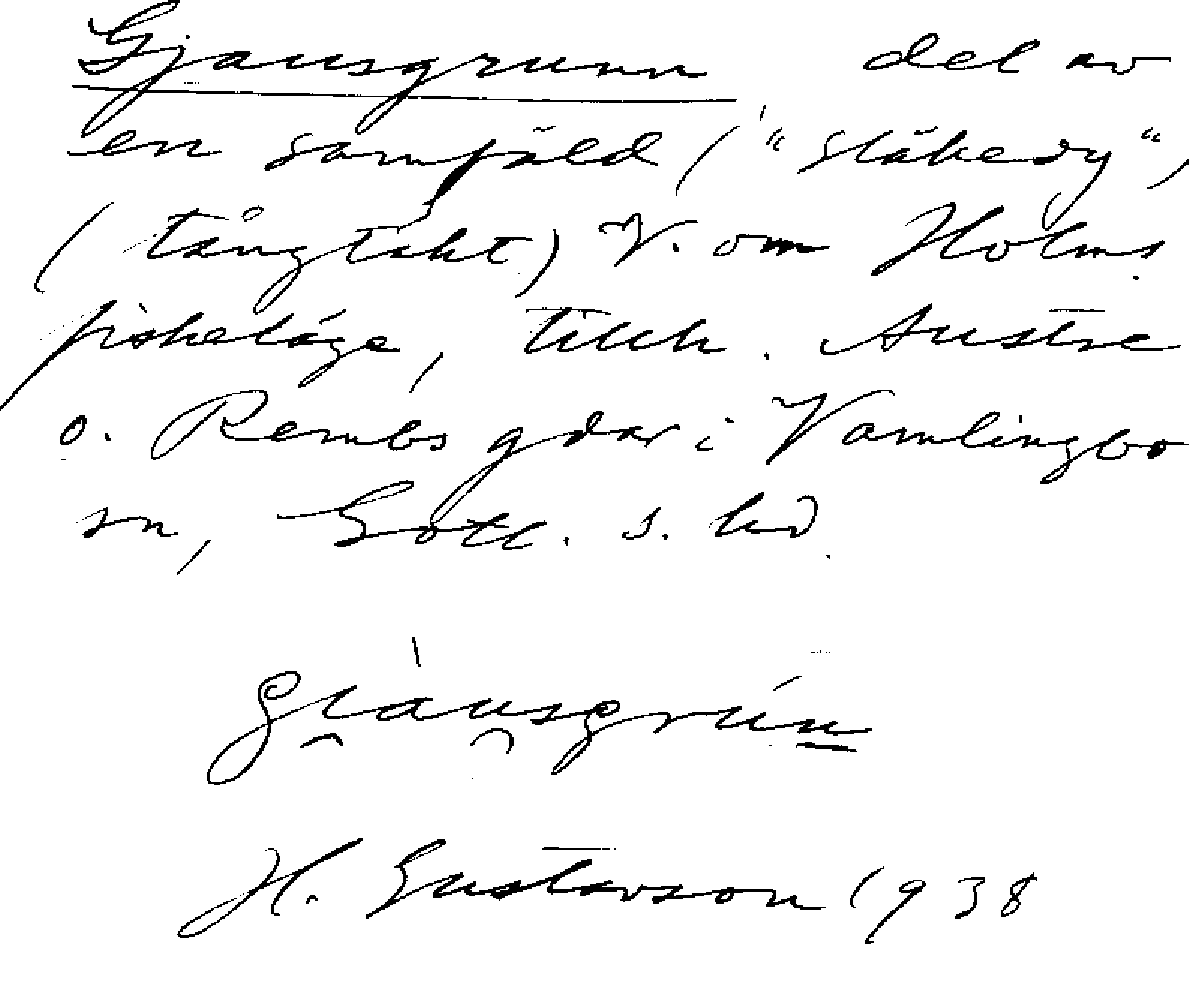 Gjausgrunn del av
en samfäld ("släkedy",
(tångtäkt) V. om Holms
fiskeläge, tillh. Austre
o. Rembs gdar i Vamlingbo
sn, Gotl. s. hd.
giáusgrún
H. Gustavson 1938